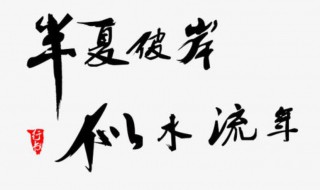 半夏彼岸
似水流年
行书